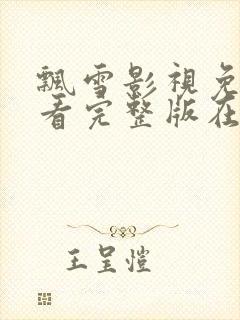 飄雪影視免
看完整版在
王呈愷